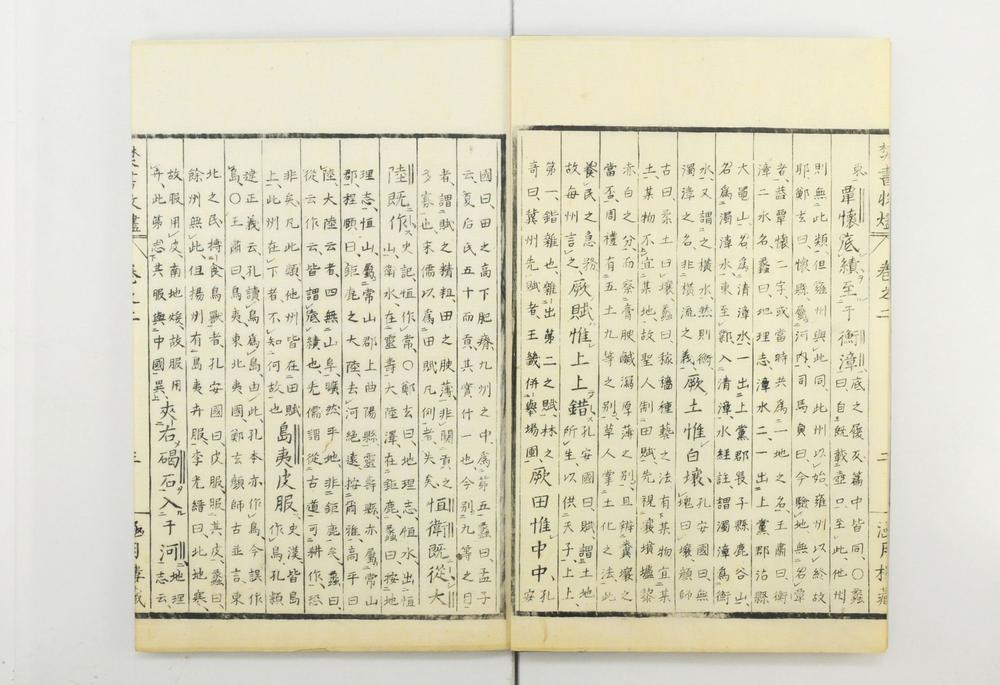 覃懷底績至于衡漳
底之履反篇中皆同○蠡
曰自既載壺口至此他州
則無此類但雍州與此同此州以始雍州以終故
耶鄭玄曰懷縣屬河內司馬貞曰今驗地無名覃
者蓋覃懷二字或當時共為一地之名王肅曰衡
漳二水名蠡曰地理志漳水二一出上黨郡沾縣
大黽山名為清漳水一出上黨郡長子縣鹿谷山
名為濁漳水東至鄴入清漳水經註謂濁漳為衡
水又謂之橫水然則衡
濁漳之名非橫流之義
厥土惟白壤
孔安國曰無
塊曰壤顏師
古曰柔土曰壤蠡曰稼穡種藝之法有某物宜某
土某物不宜某地故聖人制田賦先視壤墳壚黎
赤白之分而察膏腴鹹瀉原薄之別且辨糞壤之
當周禮有五土九等之別草人掌土化之法此
養民之急務
故每州言之
厥賦惟上上錯
孔安國曰賦謂土地
所生以供天子上上
第一錯雜也雜出第二之賦林之
奇曰冀州先賦者王畿併與場圃
厥田惟中中
孔
安
國曰田之高下肥瘠九州之中為第五蠡曰孟子
云夏后氏五十而貢其實什一也今別九等之目
者謂賦之精粗田之腴薄非關貢之
多寡也宋儒以為田賦凡何者失矣
恆衛既從大
陸既作
史記恒作常○鄭玄曰地理志恒水出恒
山衛水在靈壽大陸澤在鉅鹿蠡曰按地
理志恒山屬常山郡上曲陽縣靈壽縣亦屬常山
郡程頤曰鉅鹿之大陸去河絕遠按爾雅高平曰
陸大陸云者四無山阜曠然平地非鉅鹿矣蠡曰
從云作云皆謂底績也先儒謂從古道可耕作恐
非矣凡此類他州皆在田賦
上此州在下者不知何故也
島夷皮服
史漢皆島
作鳥孔穎
達正義云孔讀鳥為島由此孔本亦作鳥今誤作
島○王肅曰鳥夷東北夷國鄭玄顏師古並言東
北之民搏食鳥獸者孔安國曰皮服服其皮蠡曰
餘州無此但揚州有島夷卉服李光縉曰北地寒
故服用皮南地燠故服用
卉此第志其服與中國異
夾右碣石入于河
地理
志云